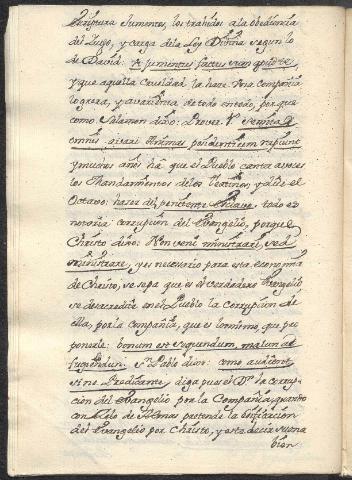 Scriptura Jumentos, los trahidos a la obediencia
del Yugo, y carga de la Ley Divina segun lo
de David: Ut jumentus factus sum apud te,
y que aquella crueldad la hace una compañia
logrera, y avarienta de todo en todo, porque
como Salomon dixo: Prover. 1º Semitæ
omnis avari animas possidentium rapiunt
y muchos años ha que el Pueblo canta a voces
los Mandamientos de los Teatinos, y al dar el
Octavo: hacer del penitente esclavo, todo es
notoria corrupcion del Evangelio, porque
Christo dixo: Non veni ministrari, sed
ministrare, y es necesario para esta economia
de Christo, se sepa que es verdadero Evangelio
se desacredite en el Pueblo la corrupcion de
ella, por la Compañia, que es lo mismo, que
ponerle: bonum est sequendum, malum
fugiendum. Sn. Pablo dixo: como audient
sine Predicante, diga pues el Dn. la corrup-
cion del Evangelio por la Compañia, quanto
con zelo de Almas pretende la edificacion
del Evangelio por Christo, y esta decir suena
bien